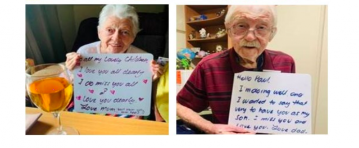 To all my Lovely Children
I love you all dearly
I do miss you all
I
Love you dearly.
Love mum
Hello Paul,
I am doing well and
I wanted to say that
very to have you as my
Son. I miss you and
love you. Love dad.